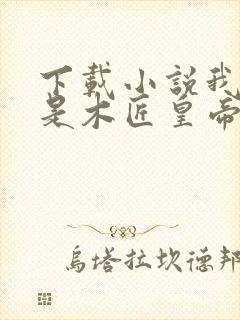 下載小說我
是木匠皇帝
烏塔拉坎德邦